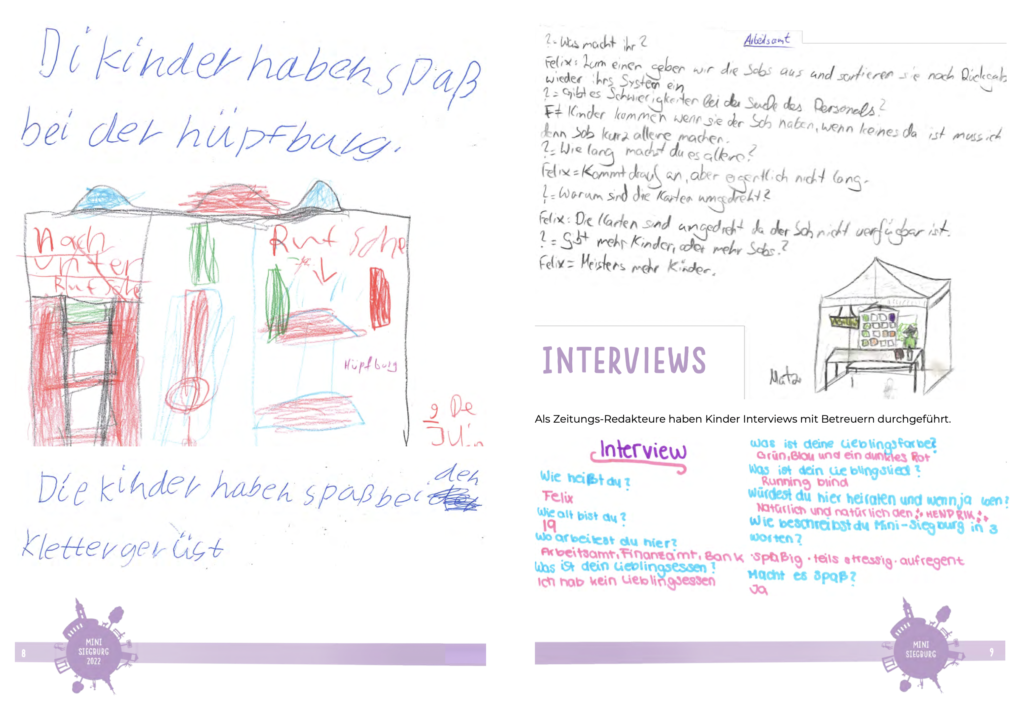 Di kinder haben spaß
bei der hüpfburg.
Nach
Unter
Rutsche
Rutsche
Hüpfburg
Die kinder haben spaß bei den
Klettergerüst
8
MINI
SIEGBURG
2022
Arbeitsamt
?= Was macht ihr?
Felix: Zum einen geben wir die Jobs aus und sortieren sie nach Rückgabe
wieder ins System ein
?= Gibt es Schwierigkeiten bei der Suche des Personals?
F= Kinder kommen wenn sie der Job haben, wenn keines da ist muss ich
denn Job kurz alleine machen.
?= Wie lang machst du es alleine?
Felix= Kommt drauf an, aber eigentlich nicht lang.
?= Warum sind die Karten umgedreht?
Felix: Die Karten sind umgedreht da der Job nicht verfügbar ist.
?= Gibt mehr Kinder, oder mehr Jobs?
Felix= Meistens mehr Kinder.
INTERVIEWS
Als Zeitungs-Redakteure haben Kinder Interviews mit Betreuern durchgeführt.
Interview
Wie heißt du?
Felix
Wie alt bist du?
19
Wo arbeitest du hier?
Arbeitsamt, Finanzamt, Bank
Was ist dein Lieblingsessen?
Ich hab kein Lieblingsessen
Was ist deine Lieblingsfarbe?
Grün, Blau und ein dunkles Rot
Was ist dein Lieblingslied?
Running blind
Würdest du hier heiraten und wenn ja wen?
Natürlich und natürlich den HENDRIK
Wie beschreibst du Mini-Siegburg in 3
worten?
·spaßig ·teils stressig ·aufregent
Macht es Spaß?
Ja
MINI
SIEGBURG
9